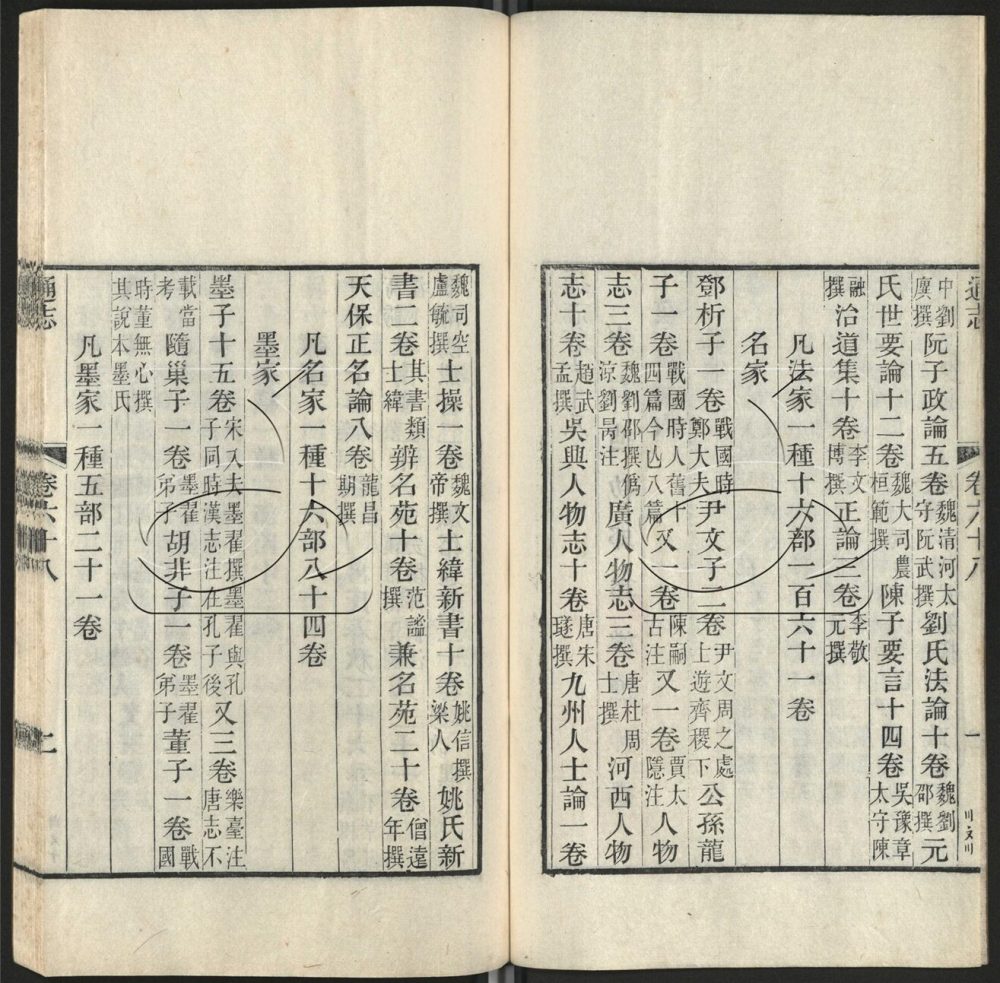 通志 卷六十八 一
中劉廙撰阮子政論五卷魏清河太守阮武撰劉氏法論十卷魏劉邵撰元
氏世要論十二卷魏大司農桓範撰陳子要言十四卷吳豫章太守陳
融撰治道集十卷李文博撰正論三卷李敬元撰
凡法家一種十六部一百六十一卷
名家
鄧析子一卷戰國時鄭大夫尹文子二卷尹文周之處士遊齊稷下公孫龍
子一卷戰國時人舊十四篇今亡八篇又一卷陳嗣古注又一卷賈太隱注人物
志三卷魏劉邵撰僞涼劉昺注廣人物志三卷唐杜周士撰河西人物
志十卷趙武孟撰吳興人物志十卷唐宋璲撰九州人士論一卷
魏司空盧毓撰士操一卷魏文帝撰士緯新書十卷姚信撰梁人姚氏新
書二卷其書類士緯辨名苑十卷范謐撰兼名苑二十卷僧遠年撰
天保正名論八卷龍昌期撰
凡名家一種十六部八十四卷
墨家
墨子十五卷宋大夫墨翟撰墨翟與孔子同時漢志注在孔子後又三卷樂臺注唐志不
載當考隨巢子一卷墨翟弟子胡非子一卷墨翟弟子董子一卷戰國
時董無心撰其說本墨氏
凡墨家一種五部二十一卷
通志 卷六十八